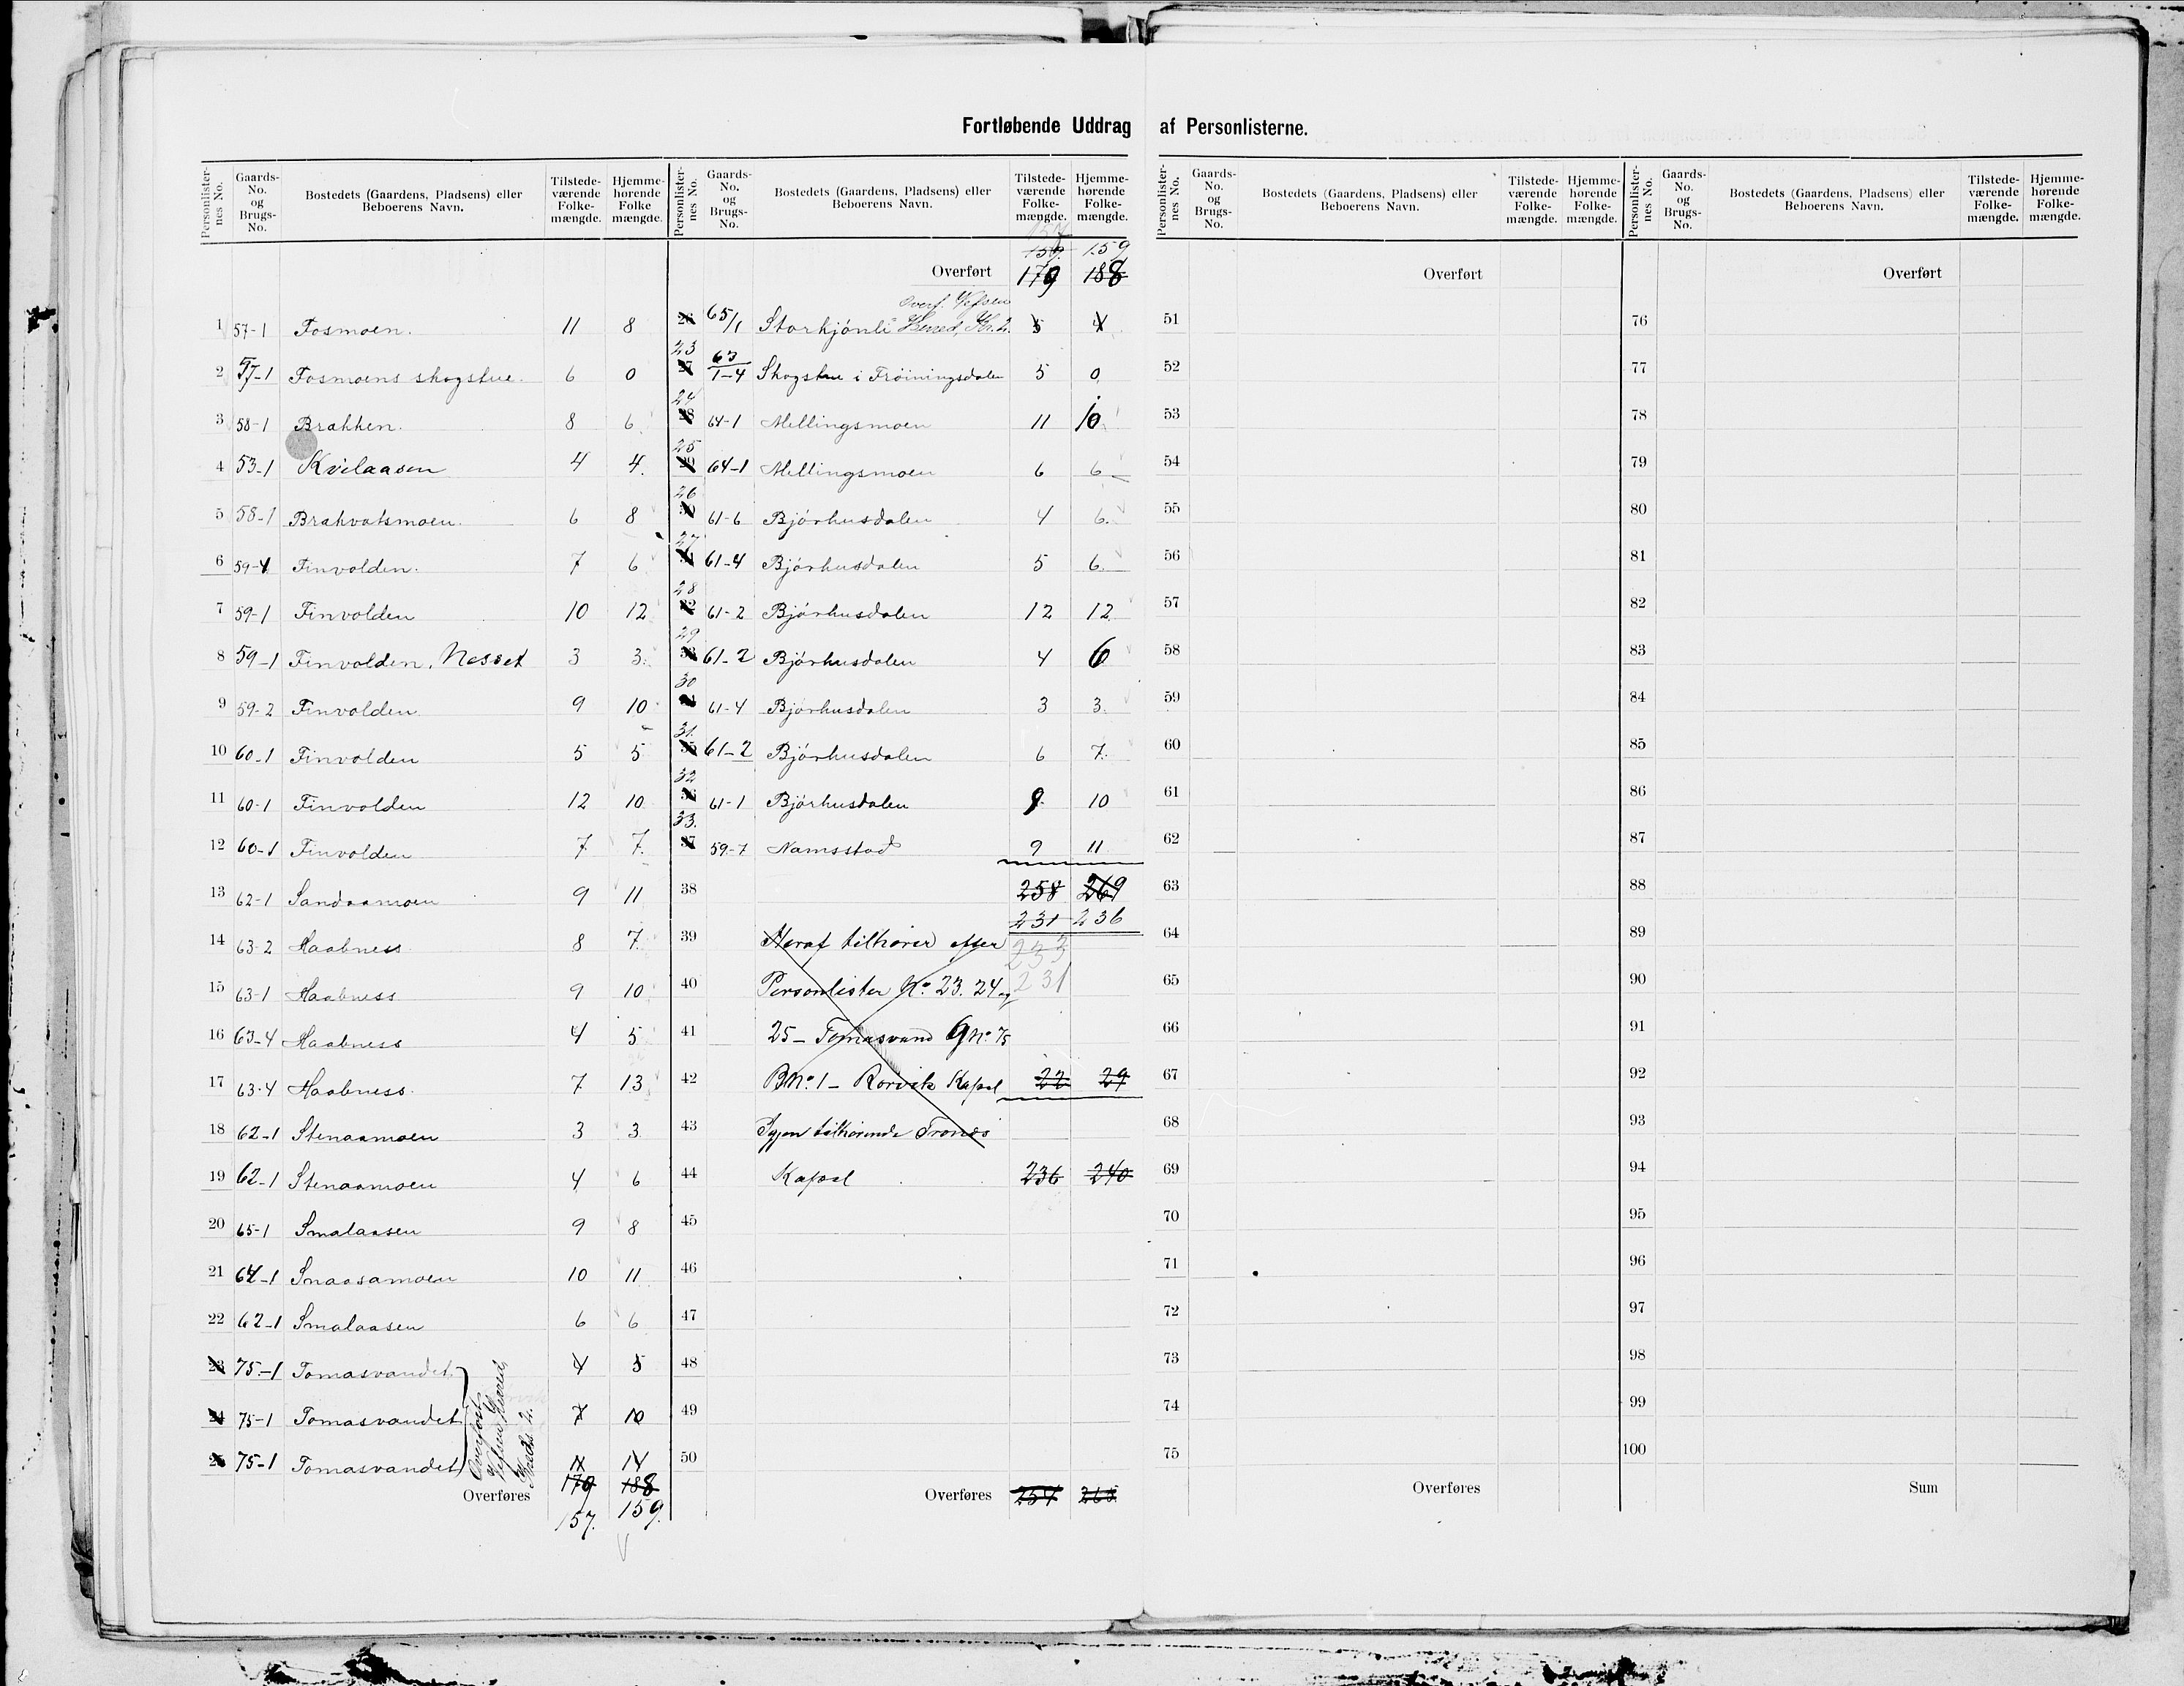 Fortløbende Uddrag af Personlisterne.
Personlister-nes No. Gaards-No. og Brugs-No. Bostedets (Gaardens, Pladsens) eller Beboerens Navn. Tilstede-værende Folke-mængde. Hjemme-hørende Folke mængde.
1 57-1 Fosmoen. 11 8
2 57-1 Fosmoens skogstue. 6 0
3 58-1 Brækken. 8 6
4 53-1 Kvilaasen 4 4.
5 58-1 Brækvatsmoen. 6 8
6 59-4 Finvolden. 7 6
7 59-1 Finvolden 10 12
8 59-1 Finvolden, Nesset 3 3.
9 59-2 Finvolden 9 10
10 60-1 Finvolden 5 5
11 60-1 Finvolden 12 10
12 60-1 Finvolden 7 7.
13 62-1 Sandaamoen 9 11
14 63-2 Haabness 8 7.
15 63-1 Haabness 9 10
16 63-4 Haabness 4 5
17 63-4 Haabness. 7 13
18 62-1 Stenaamoen 3 3
19 62-1 Stenaamoen 4 6
20 65-1 Smalaasen 9 8
21 64-1 Smaasamoen 10 11
22 62-1 Smalaasen 6 6
23 75-1 Tomasvandet 4 5
24 75-1 Tomasvandet 7 10
25 75-1 Tomasvandet 11 14
Overført Vefsen Hered, Kreds 2.
179 188
Overføres
157. 159.
Personlister-nes No. Gaards-No. og Brugs-No. Bostedets (Gaardens, Pladsens) eller Beboerens Navn. Tilstede-værende Folke-mængde. Hjemme-hørende Folke-mængde.
157
159. 159
Overført 179 188
Overf. Vefsen
26 65/1 Storkjønli Hered, Kr. 2. 5 4
23 27 63/1-4 Skogstue i Frøiningsdalen 5 0
24 28 64-1 Mellingsmoen 11 10
25 29 64-1 Mellingsmoen 6 6
26 30 61-6 Bjørhusdalen 4 6.
27 31 61-4 Bjørhusdalen 5 6.
28 32 61-2 Bjørhusdalen 12 12
29 33 61-2 Bjørhusdalen 4 6
30 34 61-4 Bjørhusdalen 3 3.
31. 35 61-2 Bjørhusdalen 6 7.
32 36 61-1 Bjørhusdalen 9 10
33. 37 59-7 Namsstad 9 11
38 258 269
231 236
39 Heraf tilhører efter 233
40 Personlister No. 23. 24 og 231
41 25 – Tomasvand G No. 75
42 B No. 1 – Rørvik Kapel 22 29
43 Igjen tilhørende Trones
44 Kapel 236 240
45
46
47
48
49
50
Overføres 257 265
Personlister-nes No. Gaards-No. og Brugs-No. Bostedets (Gaardens, Pladsens) eller Beboerens Navn. Tilstede-værende Folke-mængde. Hjemme-hørende Folke-mængde.
Overført
51
52
53
54
55
56
57
58
59
60
61
62
63
64
65
66
67
68
69
70
71
72
73
74
75
Overføres
Personlister-nes No. Gaards-No. og Brugs-No. Bostedets (Gaardens, Pladsens) eller Beboerens Navn. Tilstede-værende Folke-mængde. Hjemme-hørende Folke-mængde.
Overført
76
77
78
79
80
81
82
83
84
85
86
87
88
89
90
91
92
93
94
95
96
97
98
99
100
Sum